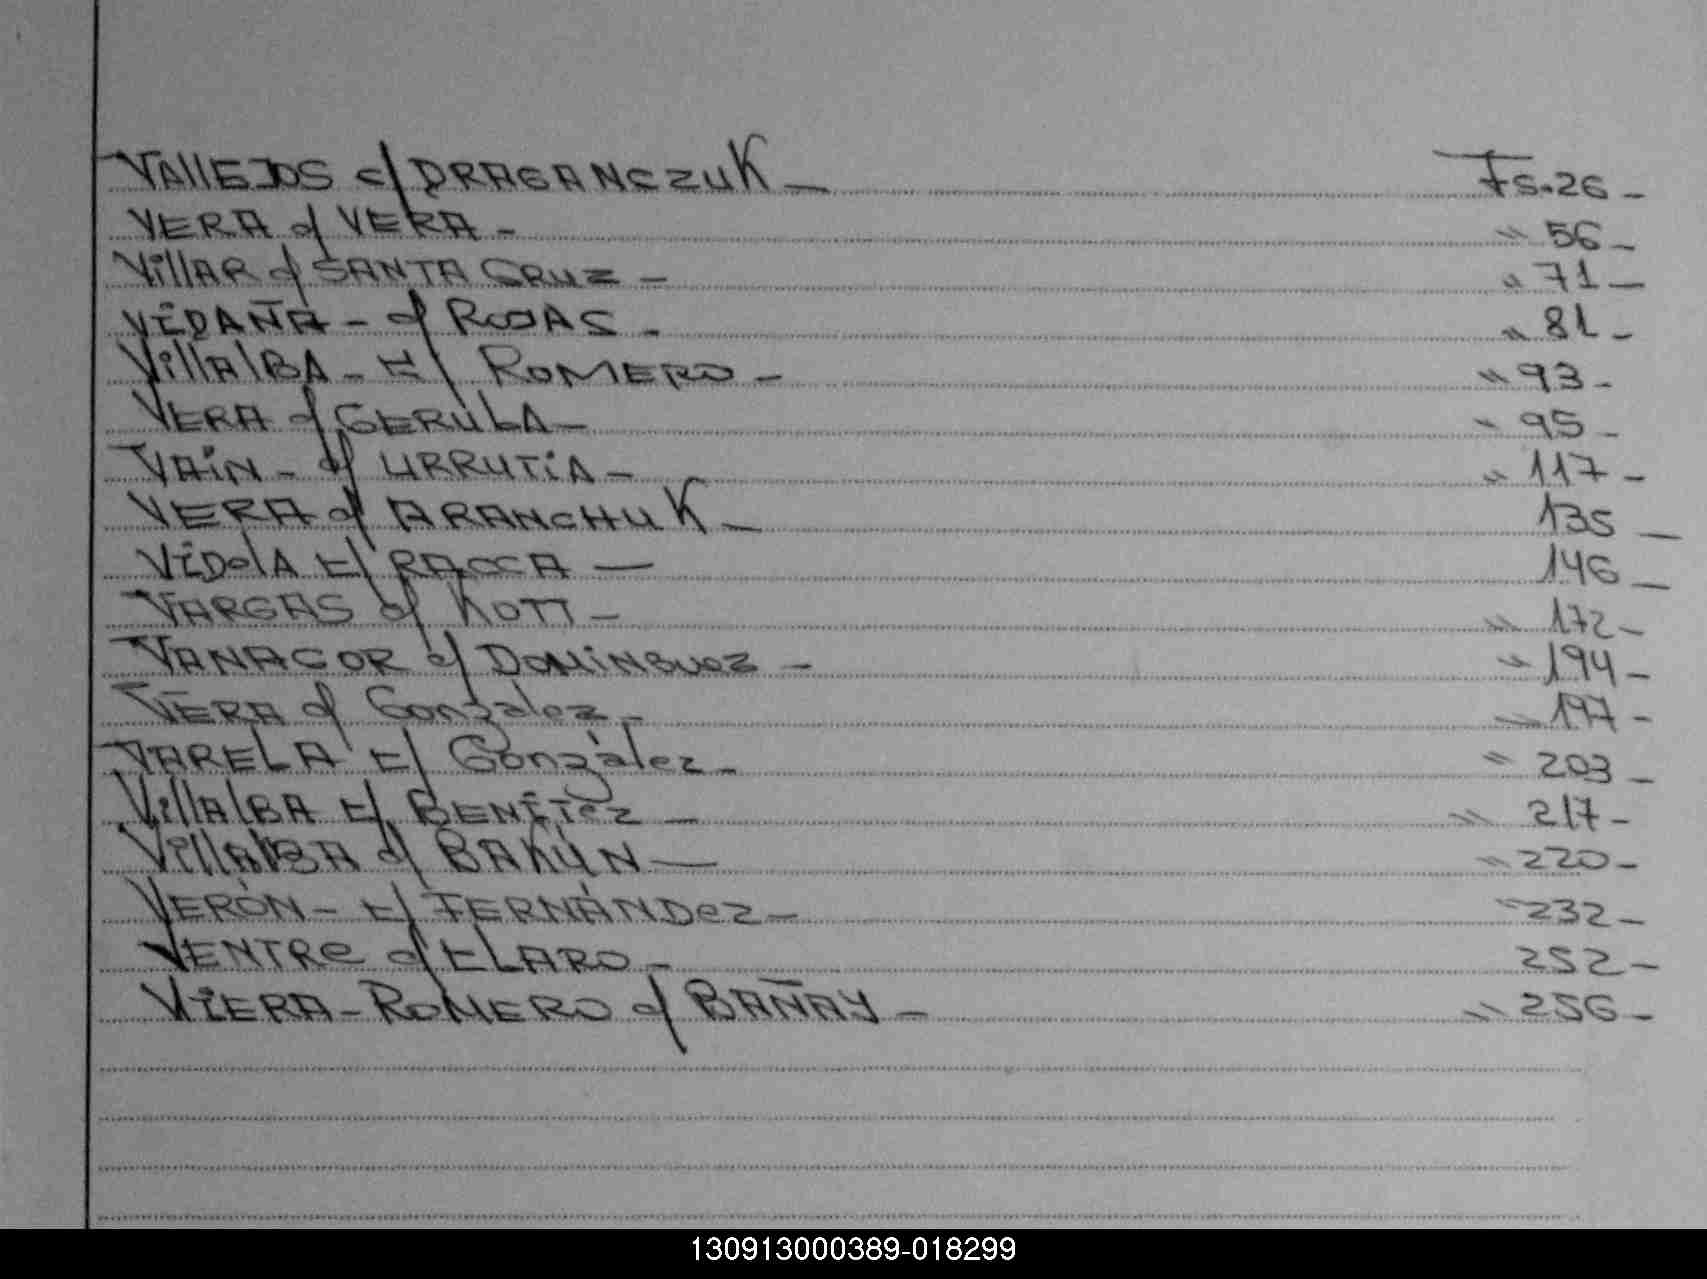 VALLEJOS c/ DRAGANCZUK — Fs. 26 —
VERA c/ VERA — " 56 —
VILLAR c/ SANTA CRUZ — " 71 —
VIDAÑA — c/ ROJAS — " 81 —
VILLALBA — c/ ROMERO — " 93 —
VERA c/ GERULA — " 95 —
VAIN — c/ URRUTIA — " 117 —
VERA c/ ARANCHUK — 135 —
VIDOLA c/ RACCA — 146 —
VARGAS c/ KOTT — " 172 —
VANACOR c/ DOMINGUEZ — " 194 —
VERA c/ González — " 197 —
VARELA c/ González — " 203 —
VILLALBA c/ BENÍTEZ — " 217 —
VILLALBA c/ BAKUN — " 220 —
VERÓN — c/ FERNÁNDEZ — " 232 —
VENTRE c/ CLARO — 252 —
VIERA — ROMERO c/ BAÑAY — " 256 —
130913000389-018299